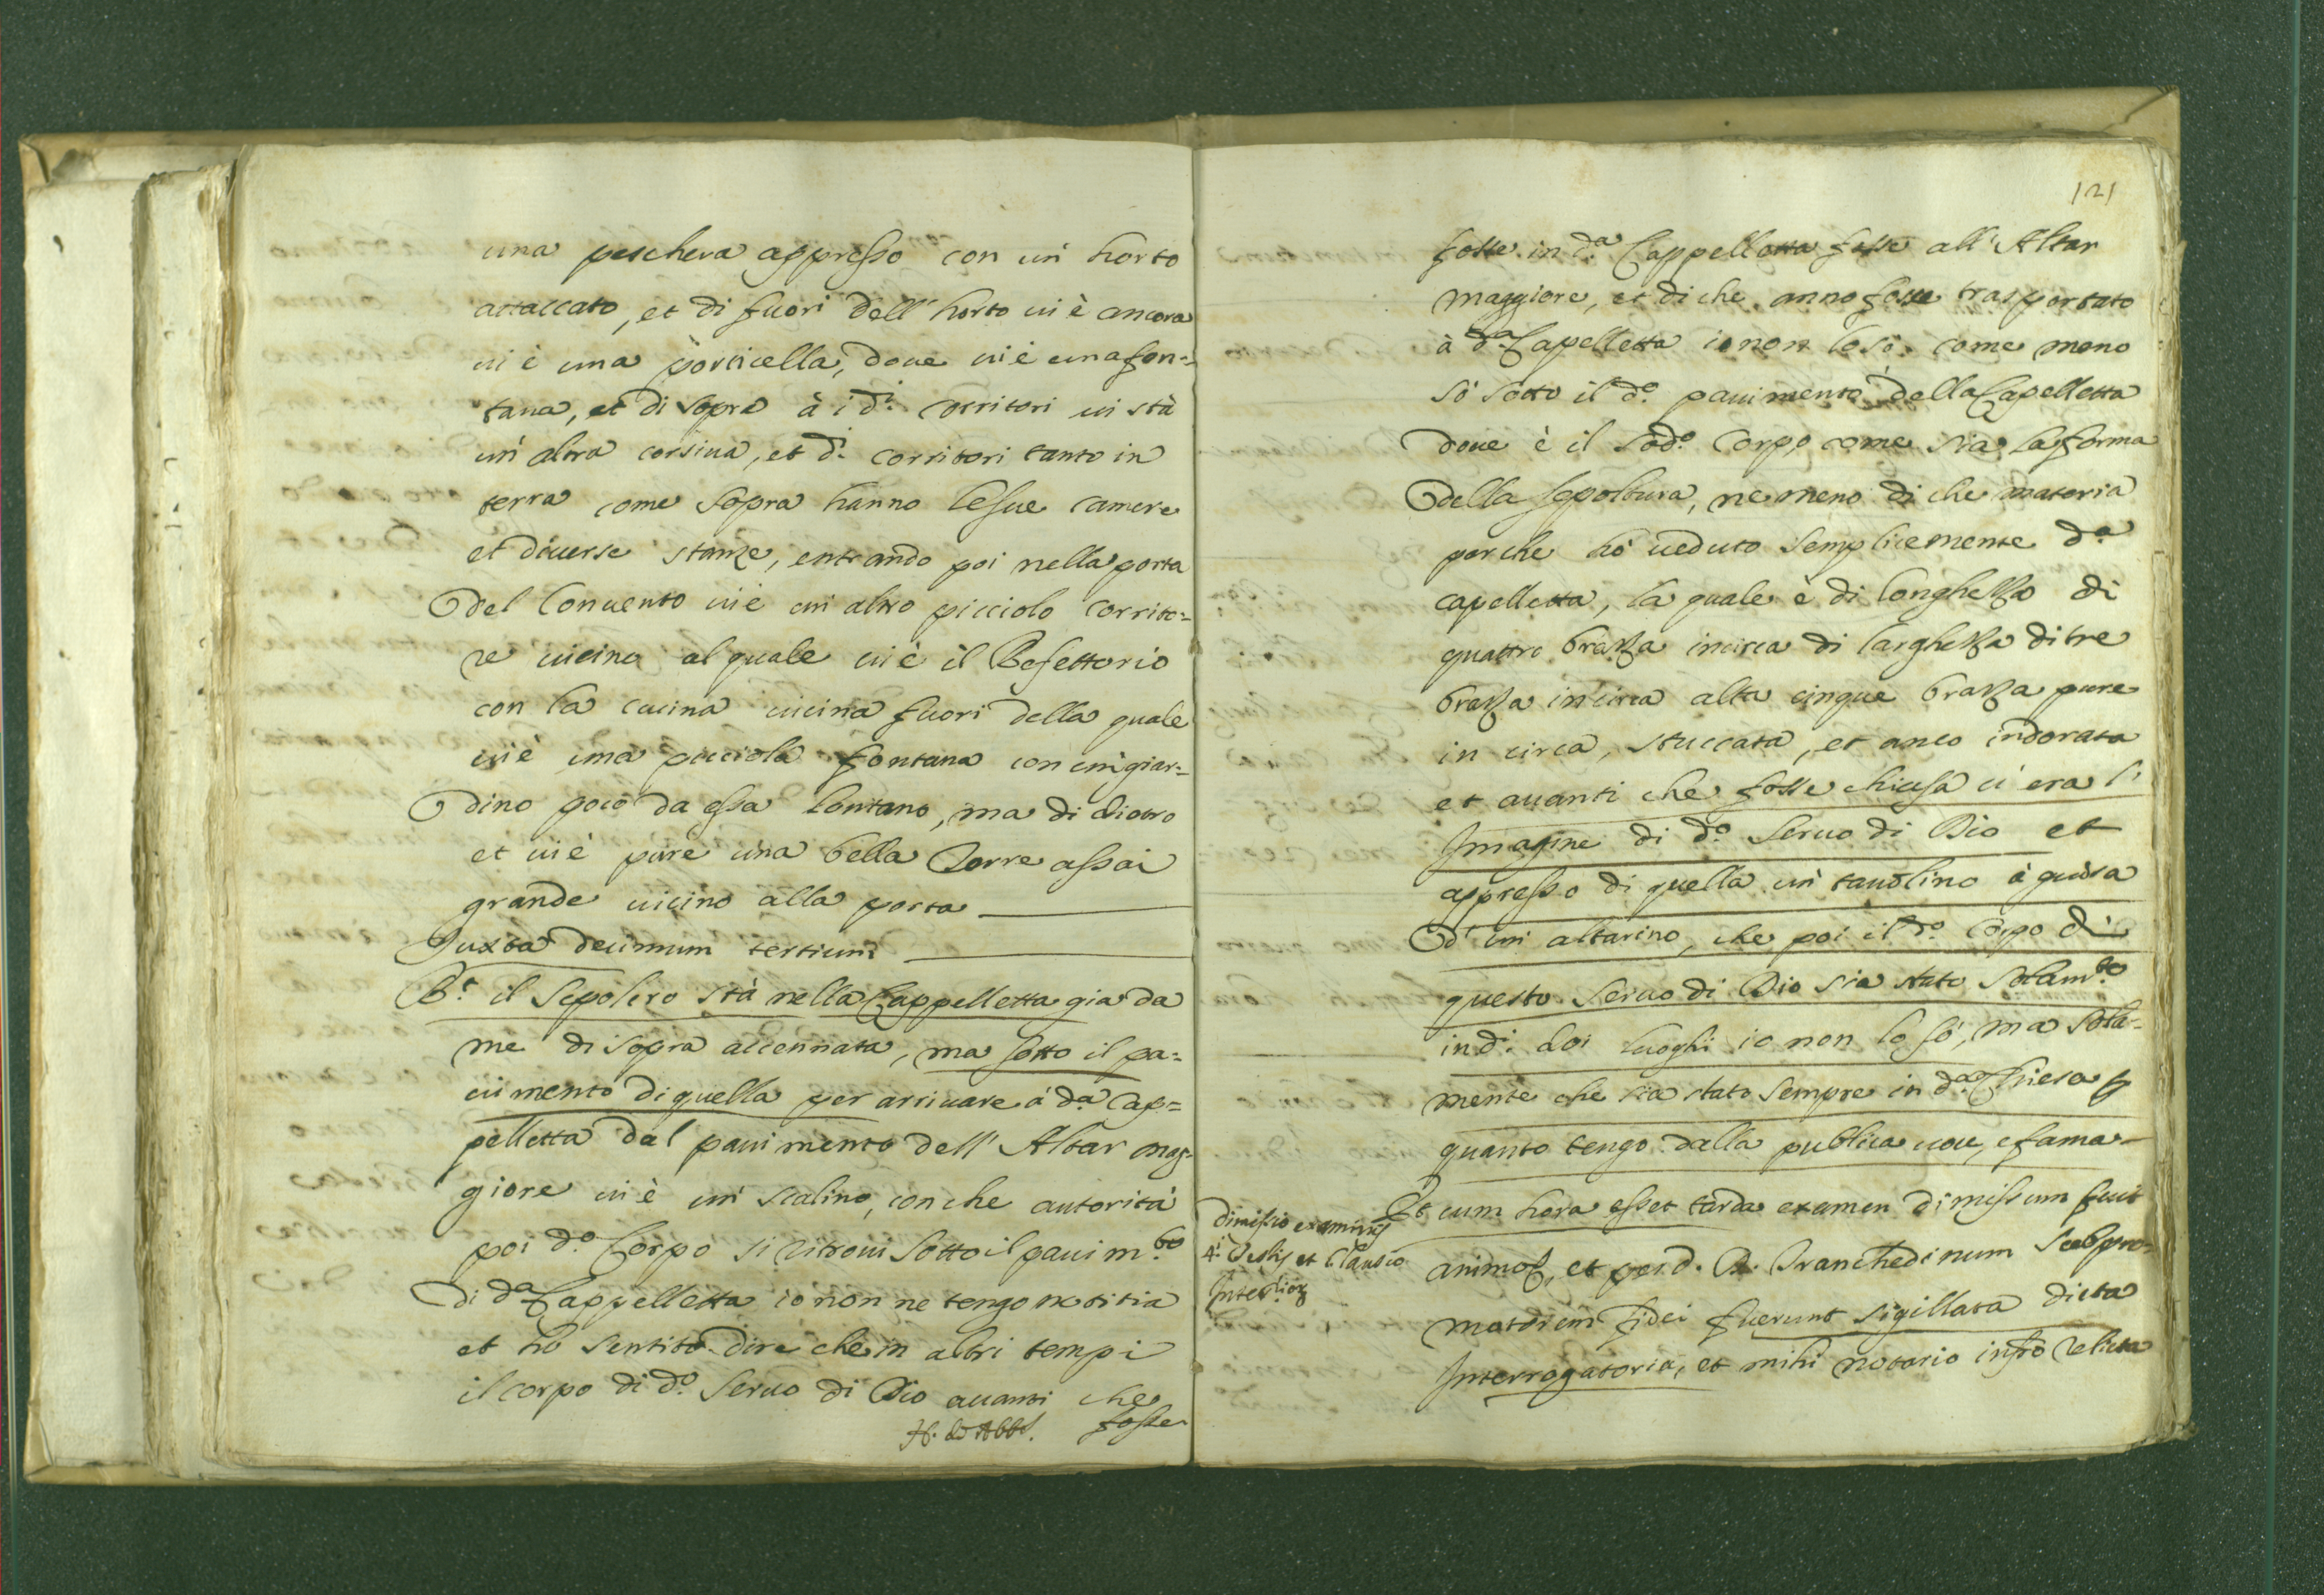 una peschera appresso con un' horto
attaccato, et di fuori dell' horto ui è ancora
ui è una porticella, doue ui è una fon=
tana, et di sopra à i d.i corritori ui stà
un' altra corsiua, et d.i corritori tanto in
terra come sopra hanno le sue camere
et diuerse stanze, entrando poi nella porta
del Conuento ui è un altro picciolo corrito=
re uicino al quale ui è il Refettorio
con la cucina uicina fuori della quale
ui è una picciola fontana con un giar=
dino poco da essa lontano, ma di dietro
et ui è pure una bella Torre assai
grande uicino alla porta
Juxta decimum tertium
R.t il Sepolcro stà nella Cappelletta gia da
me di sopra accennata, ma sotto il pa=
uimento di quella per arriuare à d.a Cap=
pelletta dal pauimento dell' Altar mag=
giore ui è un' scalino, con che autorità
poi d.o Corpo si ritroui sotto il pauim.to
di d.a Cappelletta io non ne tengo notitia
et hò sentito dire che in altri tempi
il corpo di d.o Seruo di Dio auanti che
fosse
121
fosse in d.a Cappelletta fosse all' Altar
maggiore, et di che anno fosse trasportato
à d.a Capelletta io non lo sò, come meno
sò sotto il d.o pauimento della Capelletta
doue è il sod.o Corpo come sia la forma
della sepoltura, ne meno di che materia
perche hò ueduto semplicemente d.a
capelletta, la quale è di longhezza di
quattro brazza incirca di larghezza di tre
brazza in circa alta cinque brazza pure
in circa, stuccata, et anco indorata
et auanti che fosse chiusa ci era l'
Imagine di d.o Seruo di Dio et
appresso di quella un' tauolino à guisa
d' un altarino, che poi il d.o Corpo di
questo Seruo di Dio sia stato solam.te
in d.i doi luoghi io non lo sò, ma sola=
mente che sia stato sempre in d.a Chiesa p
quanto tengo dalla publica uoce, e fama
Et cum hora esset tarda examen dimissum fuit
animo, et per d. Branchedinum Subpro=
motorem fidei fuerunt sigillata dicta
Interrogatoria, et mihi notario infro relicta
Dimissio examinis
4.i Testis et clausio
Interrior